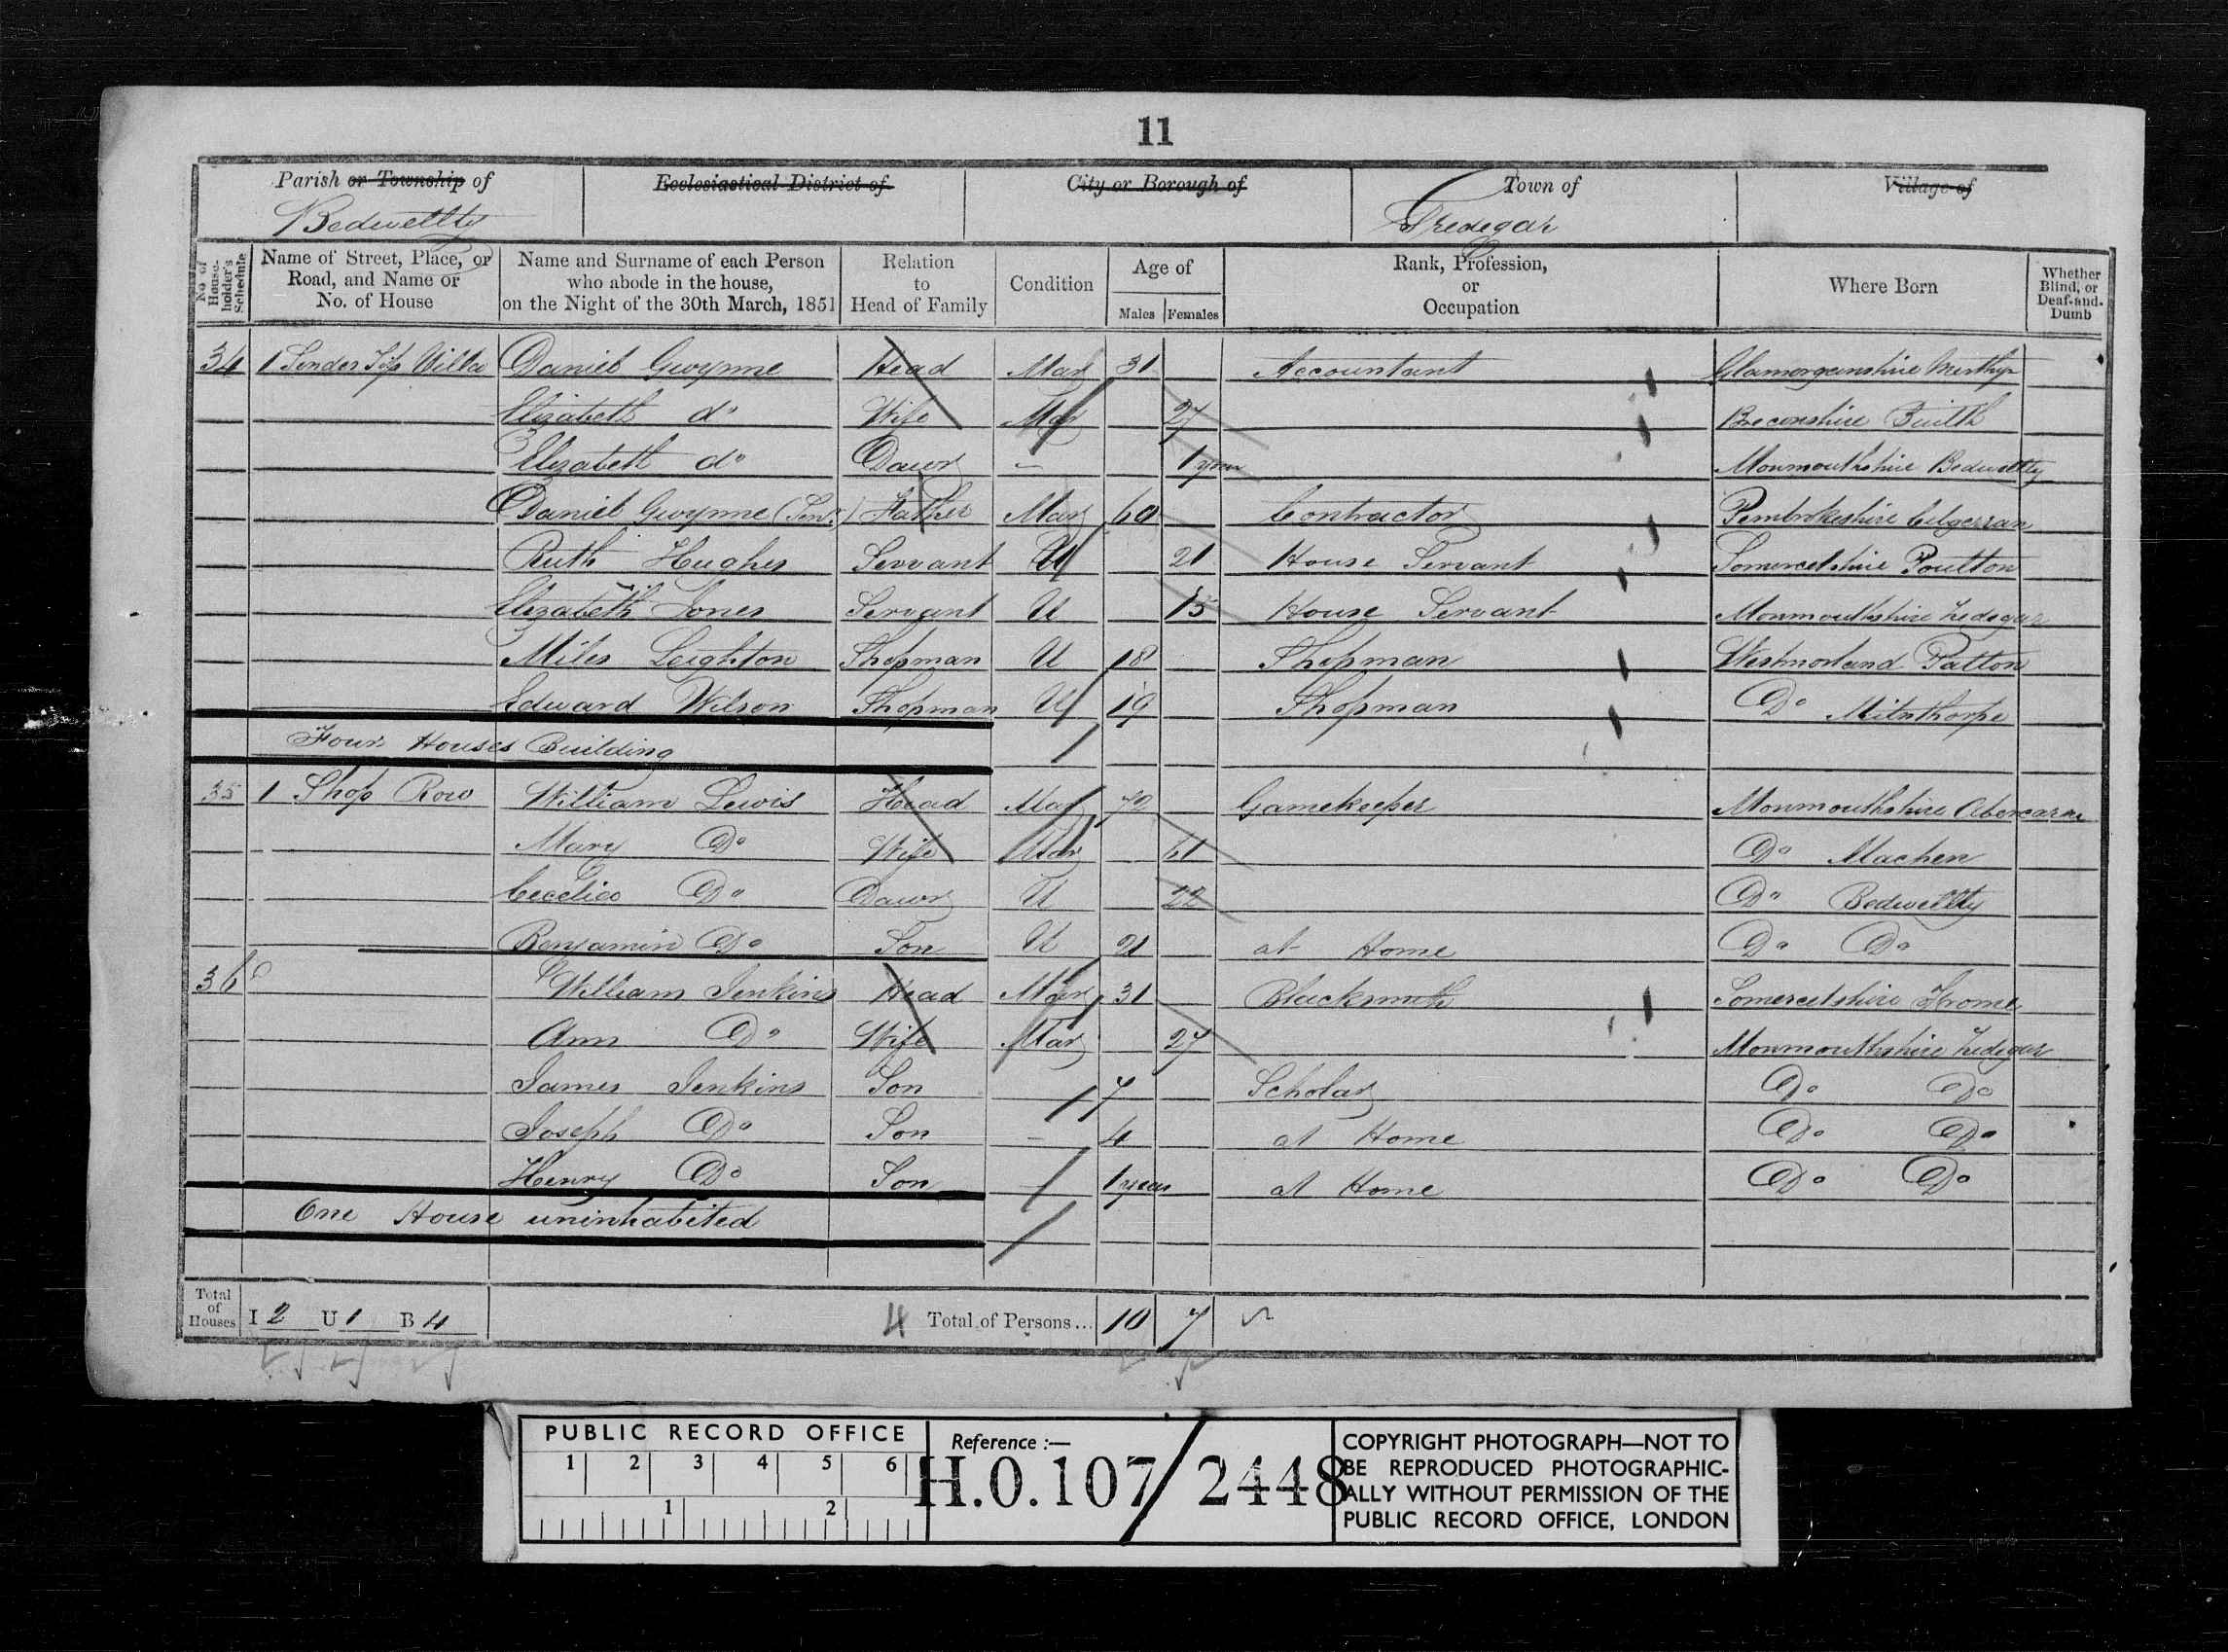 11
Parish or Township of Ecclesiastical District of City or Borough of Town of Village of
Bedwellty Tredegar
No. of House-holder's Schedule Name of Street, Place, or Road, and Name or No. of House Name and Surname of each Person who abode in the house, on the Night of the 30th March, 1851 Relation to Head of Family Condition Age of Males Females Rank, Profession, or Occupation Where Born Whether Blind, or Deaf-and-Dumb
34 1 Daniel Gwynne Head Mar 31 Accountant Glamorganshire Merthyr
Elizabeth do Wife Mar 27 Breconshire Builth
Elizabeth do Daur 1 year Monmouthshire Bedwellty
Daniel Gwynne (Senr) Father Mar 60 Contractor Pembrokeshire Cilgerran
Ruth Hughes Servant U 21 House Servant Somersetshire Poulton
Elizabeth Jones Servant U 15 House Servant Monmouthshire Tredegar
Miles Leighton Shopman U 18 Shopman Westmorland Patton
Edward Wilson Shopman U 19 Shopman Do Milnthorpe
Four Houses Building
35 1 Shop Row William Lewis Head Mar 72 Gamekeeper Monmouthshire Abercarne
Mary Do Wife Mar 61 Do Machen
Cecelia Do Daur U 22 Do Bedwellty
Benjamin Do Son U 21 at Home Do Do
36 William Jenkins Head Mar 31 Blacksmith Somersetshire Frome
Ann Do Wife Mar 27 Monmouthshire Tredegar
James Jenkins Son 7 Scholar Do Do
Joseph Do Son 4 at Home Do Do
Henry Do Son 1 year at Home Do Do
One House uninhabited
Total of Houses I 2 U 1 B 4 4 Total of Persons... 10 7
PUBLIC RECORD OFFICE
1 2 3 4 5 6
1 2
Reference :—
H.O.107/2448
COPYRIGHT PHOTOGRAPH—NOT TO
BE REPRODUCED PHOTOGRAPHIC-
ALLY WITHOUT PERMISSION OF THE
PUBLIC RECORD OFFICE, LONDON